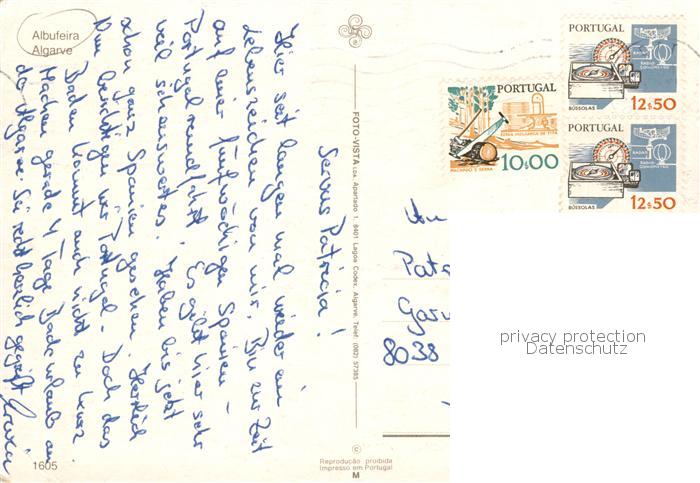 Albufeira
Algarve
Servus Patricia!
Hier seit langem mal wieder ein
Lebenszeichen von mir. Bin zur Zeit
auf einer fünfwöchigen Spanien-
Portugalrundfahrt. Es gibt hier sehr
viel sehenswertes. Haben bis jetzt
schon ganz Spanien gesehen. Herrlich
Nun besichtigen wir Portugal. Doch das
Baden kommt auch nicht zu kurz
Machen gerade 4 Tage Badeurlaub an
der Algarve. Sei recht herzlich gegrüßt
1605
FOTO-VISTA LDA. Apartado 1, 8401 Lagoa Codex, Algarve, Telef. (082) 57385
© 
Reprodução proibida
Impresso em Portugal
M
PORTUGAL
SERRA MECÂNICA DE FITA
10$00
MACHADO E SERRA
PORTUGAL
RADAR
RADIO GONIOMETRO
BÚSSOLAS
12$50
PORTUGAL
RADAR
RADIO GONIOMETRO
BÚSSOLAS
12$50
An
Patr
8038
privacy protection
Datenschutz